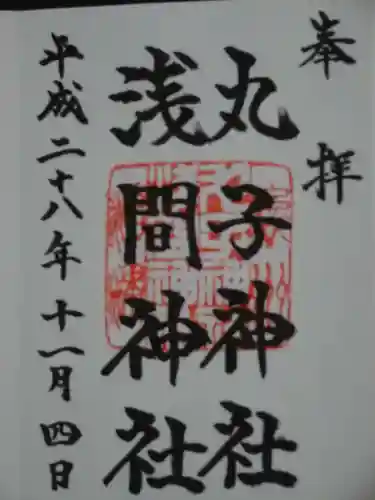 奉拝
丸子神社
浅間神社
平成二十八年十一月四日